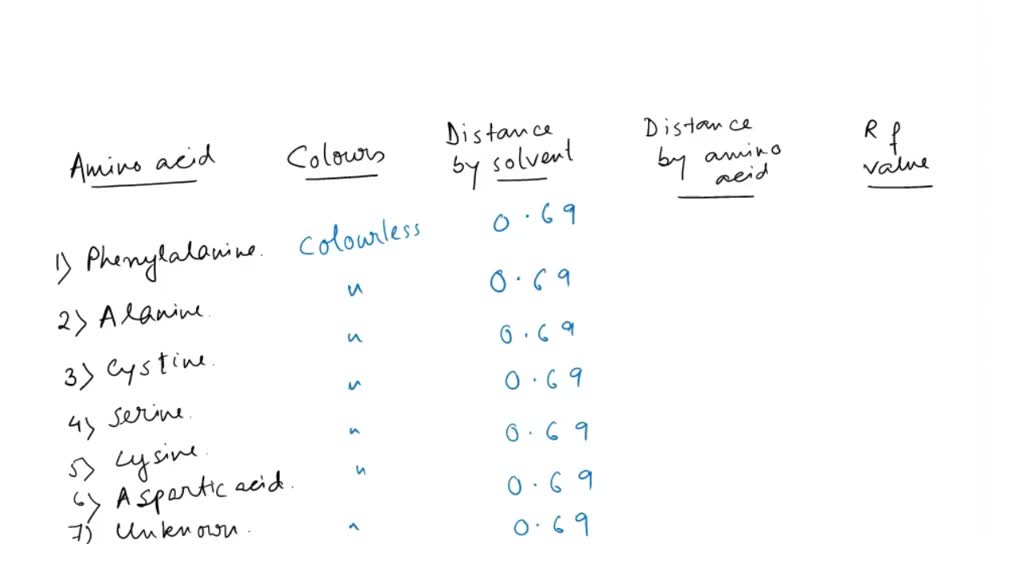 Amino acid Colours Distance by solvent Distance by amino acid Rf value
1) Phenylalanine. Colourless 0.69
2) Alanine. " 0.69
3) Cystine. " 0.69
4) Serine. " 0.69
5) Lysine. " 0.69
6) Aspartic acid. " 0.69
7) Unknown. " 0.69